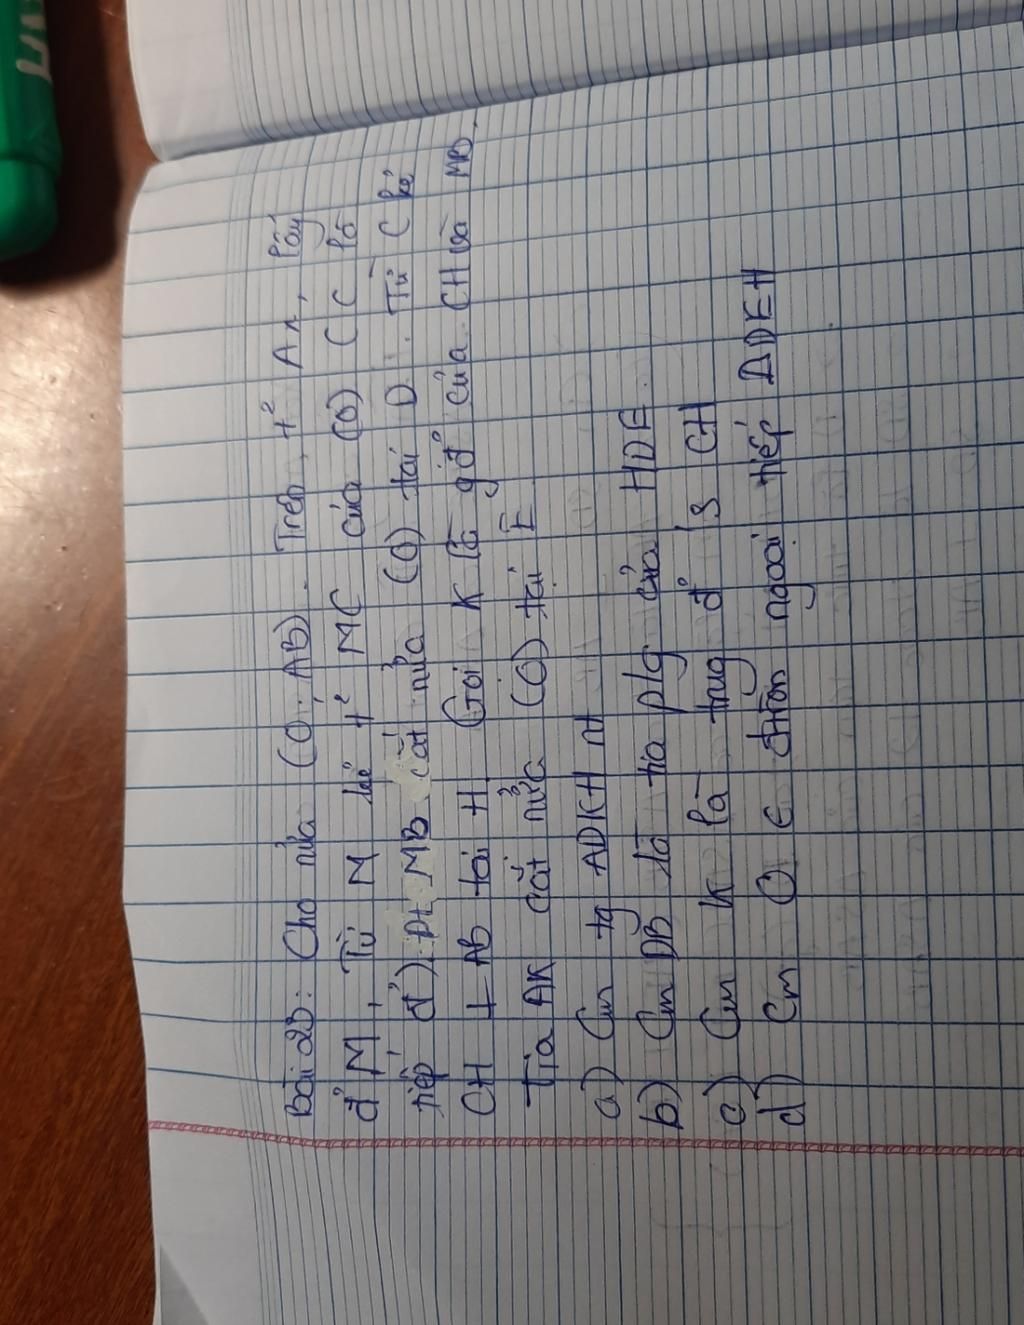 Bài 23: Cho nửa (O; AB). Trên t² Ax, lấy
đ² M, Từ M kẻ t² MC của (O) (C là
tiếp đ²). Đt MB cắt nửa (O) tại D. Từ C kẻ
CH ⊥ AB tại H. Gọi K là gđ² của CH và MB.
Tia AK cắt nửa (O) tại E
a) Cm tg ADKH nt
b) Cm DB là tia plg của HDE.
c) Cm K là trug đ² CH
d) Cm O ∈ đtròn ngoại tiếp ΔDEH